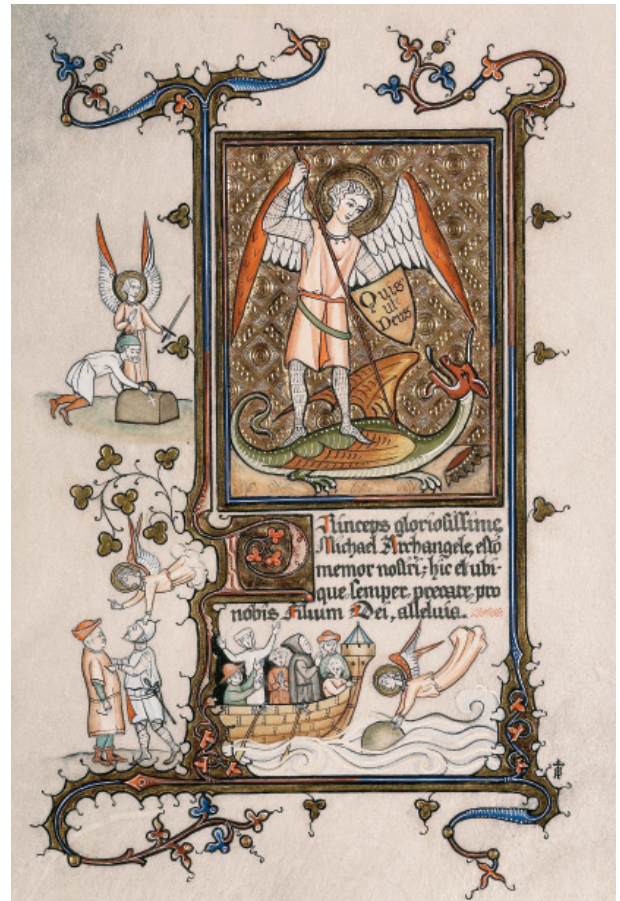 Quis
ut
Deus
Princeps gloriosissime
Michael Archangele, esto
memor nostri, hic et ubi-
que semper precare pro
nobis Filium Dei, alleluia.